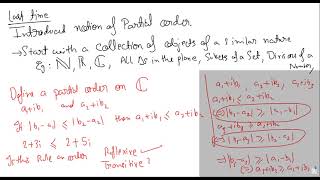 Last time
Introduced notion of Partial order.
→ Start with a collection of objects of a similar nature
Eg: ℕ, ℝ, ℂ, All Δs in the plane, Subsets of a Set, Divisors of a Number,
Define a partial order on ℂ
a₁+ib₁ and a₂+ib₂
If |b₁-a₁| ≤ |b₂-a₂| then a₁+ib₁ ≤ a₂+ib₂
2+3i ≤ 2+5i
Is this Rule an order
Reflexive
Transitive?
a₁+ib₁, a₂+ib₂, a₃+ib₃
a₁+ib₁ ≤ a₂+ib₂